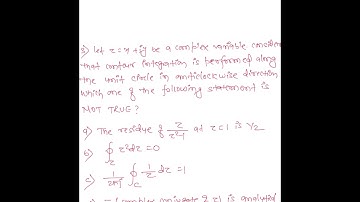 3) let z = x + iy be a complex variable consider
that contour integration is performed along
the unit circle in anticlockwise direction
which one of the following statement is
NOT TRUE?
a) The residue of z/(z²-1) at z=1 is 1/2
b) ∮_C z² dz = 0
c) 1/(2πi) ∮_C 1/z dz = 1
(complex conjugate of z) is analytical